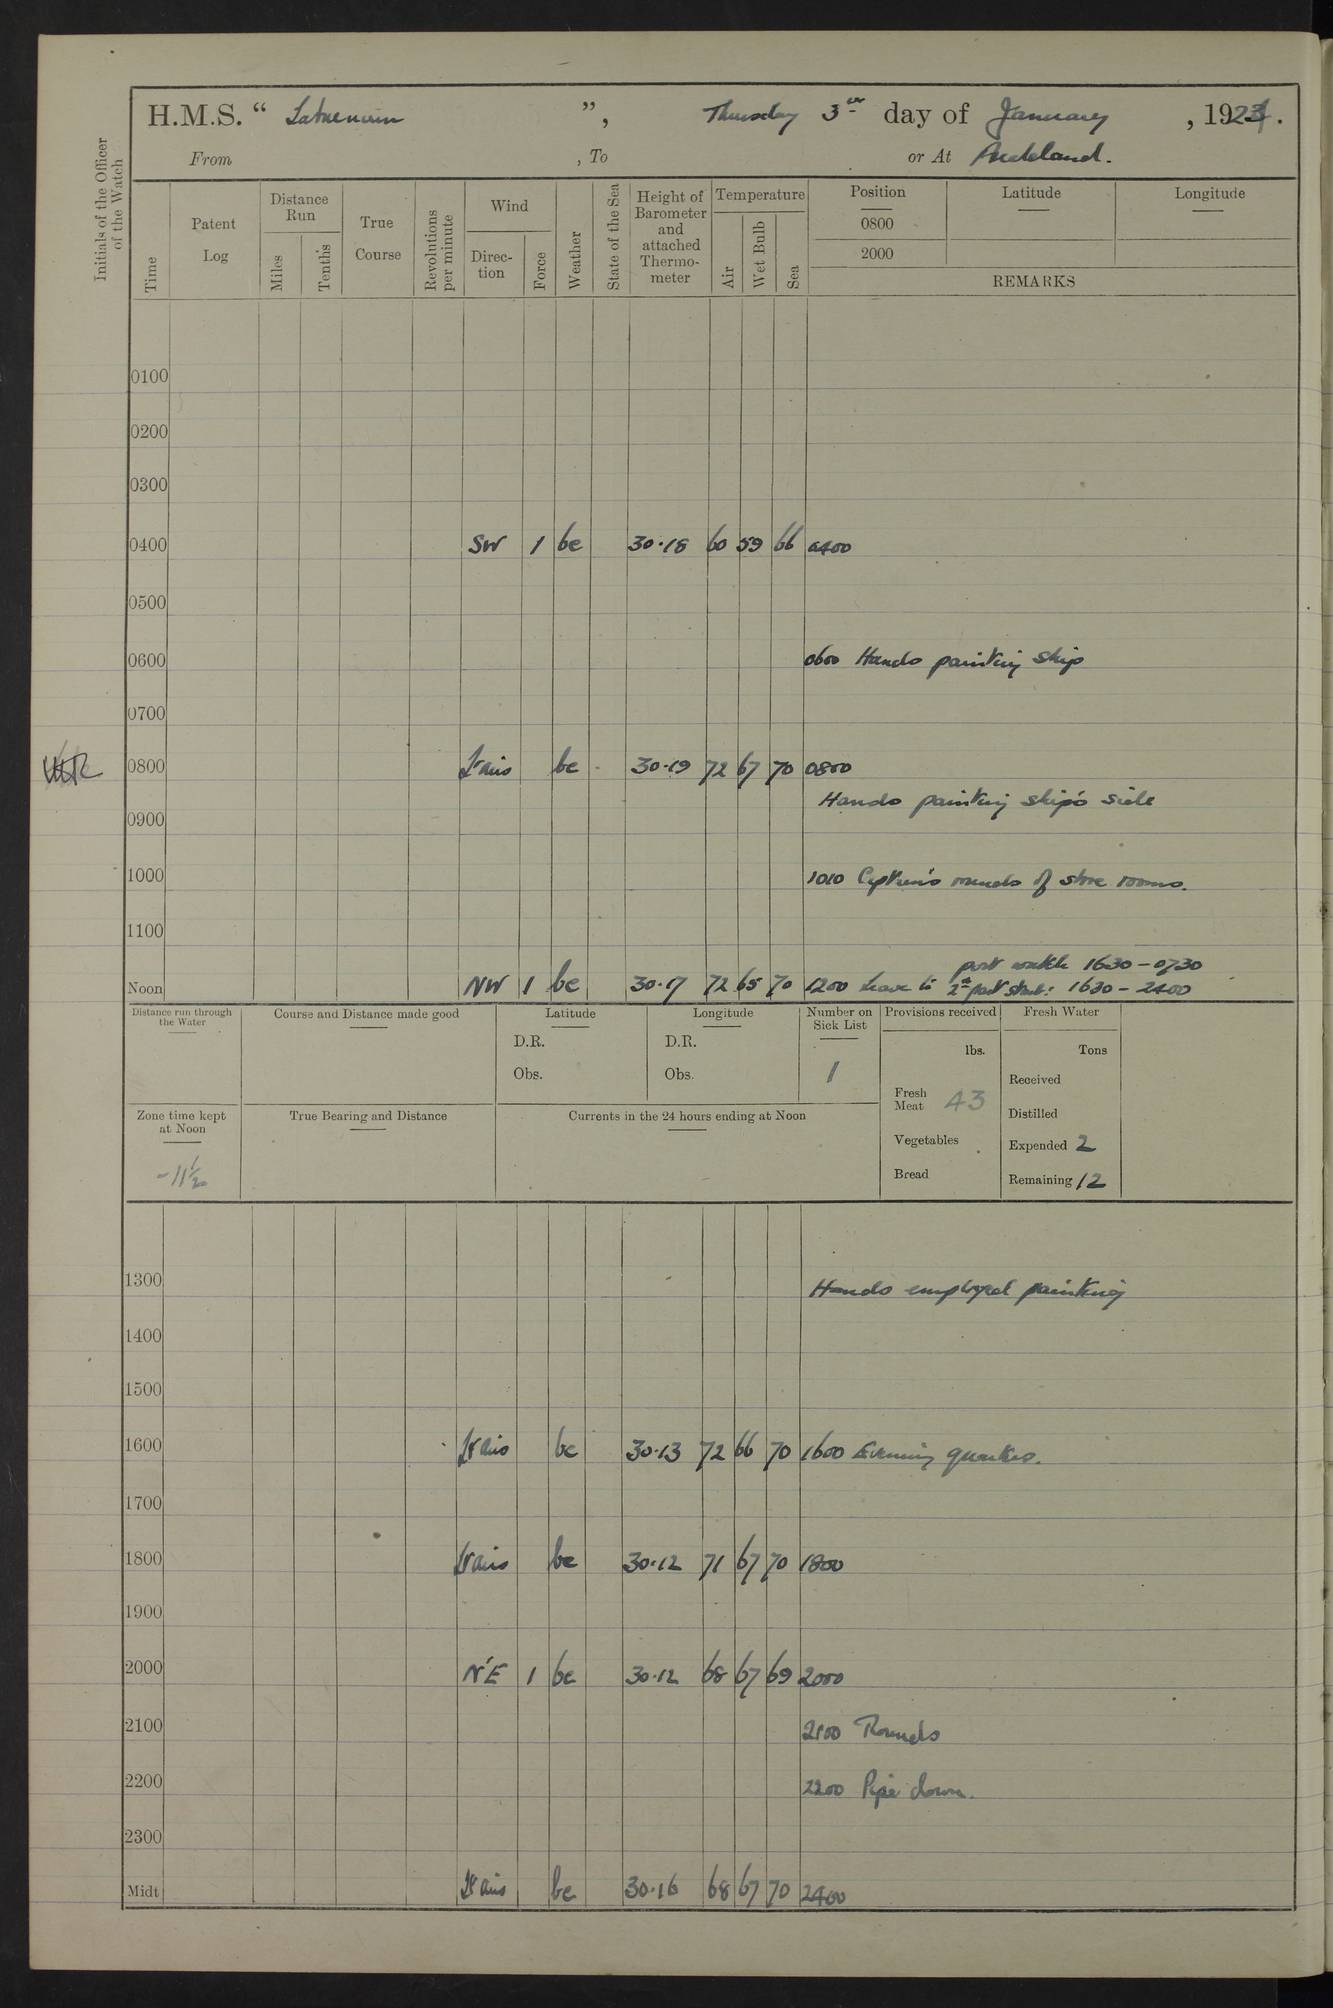 H.M.S. “ Laburnum ”, Thursday 3rd day of January , 1924.
From , To or At Auckland.
Initials of the Officer of the Watch
Time
Patent Log
Distance Run
Miles
Tenths
True Course
Revolutions per minute
Wind
Direc-tion
Force
Weather
State of the Sea
Height of Barometer and attached Thermo-meter
Temperature
Air
Wet Bulb
Sea
Position
0800
2000
Latitude
Longitude
REMARKS
0100
0200
0300
0400 SW 1 bc 30.18 60 59 66 0400
0500
0600 0600 Hands painting ship
0700
0800 Lt airs bc 30.19 72 67 70 0800
Hands painting ship's side
0900
1000 1010 Captain's rounds of store rooms.
1100
port watch 1630 - 0730
Noon NW 1 bc 30.17 72 65 70 1200 Leave to 2nd part starb: 1630 - 2400
Distance run through the Water
Course and Distance made good
Latitude
D.R.
Obs.
Longitude
D.R.
Obs.
Number on Sick List
1
Provisions received
lbs.
Fresh Meat 43
Vegetables
Bread
Fresh Water
Tons
Received
Distilled
Expended 2
Remaining 12
Zone time kept at Noon
-11 1/2
True Bearing and Distance
Currents in the 24 hours ending at Noon
1300 Hands employed painting
1400
1500
1600 Lt airs bc 30.13 72 66 70 1600 Evening quarters.
1700
1800 Lt airs bc 30.12 71 67 70 1800
1900
2000 N'E 1 bc 30.12 68 67 69 2000
2100 2100 Rounds
2200 2200 Pipe down.
2300
Midt Lt airs bc 30.16 68 67 70 2400